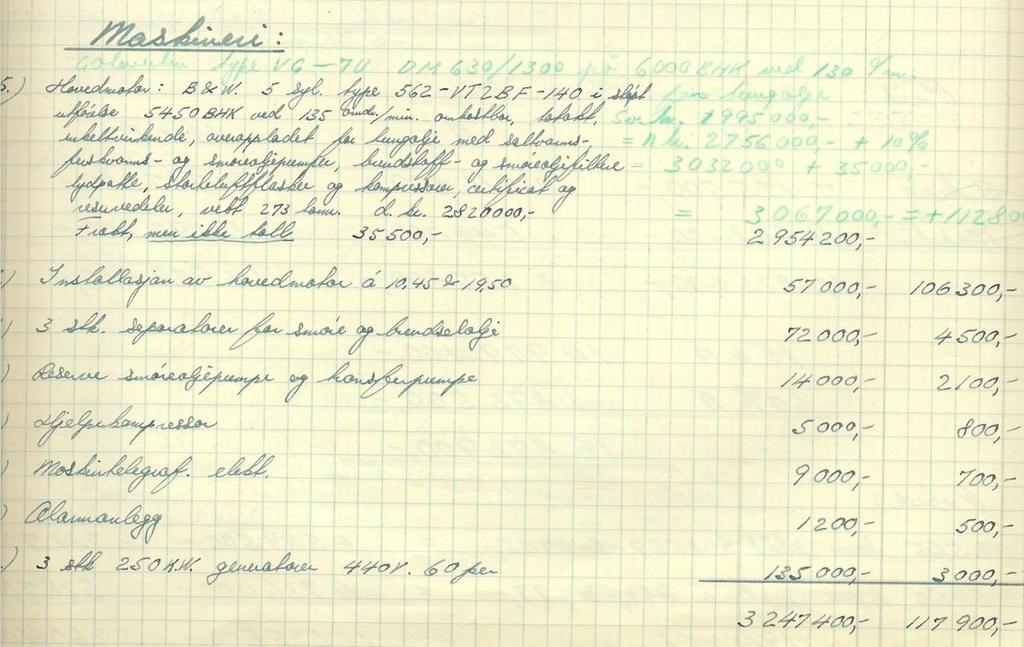 Maskineri:
Götaverken type VG-7U DM 630/1300 på 6000 BHK ved 130 o/m.
5.) Hovedmotor: B&W. 5 syl. type 562-VT2BF-140 i støpt for tungolje
utførelse 5450 BHK ved 135 omdr./min. omkastbar, totakt, Sv. kr. 1995000,-
enkeltvirkende, overoppladet for tungolje med saltvanns- = n kr. 2756000,- + 10%
ferskvanns- og smøreoljepumper, brendstoff- og smøreoljefiltere = 3032000 + 35000,-
lydpotte, starteluftflasker og kompressorer, certificat og
reservedeler, vekt 273 tonn. d. kr. 2820000,- = 3067000,- = +112800
+ frakt, men ikke toll 35500,- 2954200,-
) Installasjon av hovedmotor á 10,45 & 19,50 57000,- 106300,-
) 3 stk. separatorer for smøre og brendselolje 72000,- 4500,-
) Reserve smøreoljepumpe og transferpumpe 14000,- 2100,-
) Hjelpekompressor 5000,- 800,-
) Maskintelegraf. elekt. 9000,- 700,-
) Alarmanlegg 1200,- 500,-
.) 3 stk 250 K.W. generatorer 440 V. 60 per 135000,- 3000,-
3247400,- 117900,-